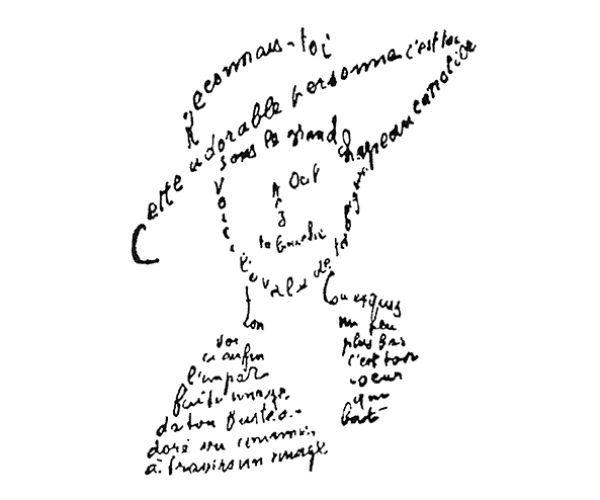 Reconnais-toi
Cette adorable personne c'est toi
sous le grand chapeau canotier
Oeil
Nez
la bouche
Voici l'ovale de ta figure
Ton
Cou exquis
Voi
ci enfin
l'impar
faite image
de ton buste a
doré vu comme
à travers un nuage
un peu
plus bas
c'est ton
coeur
qui
bat